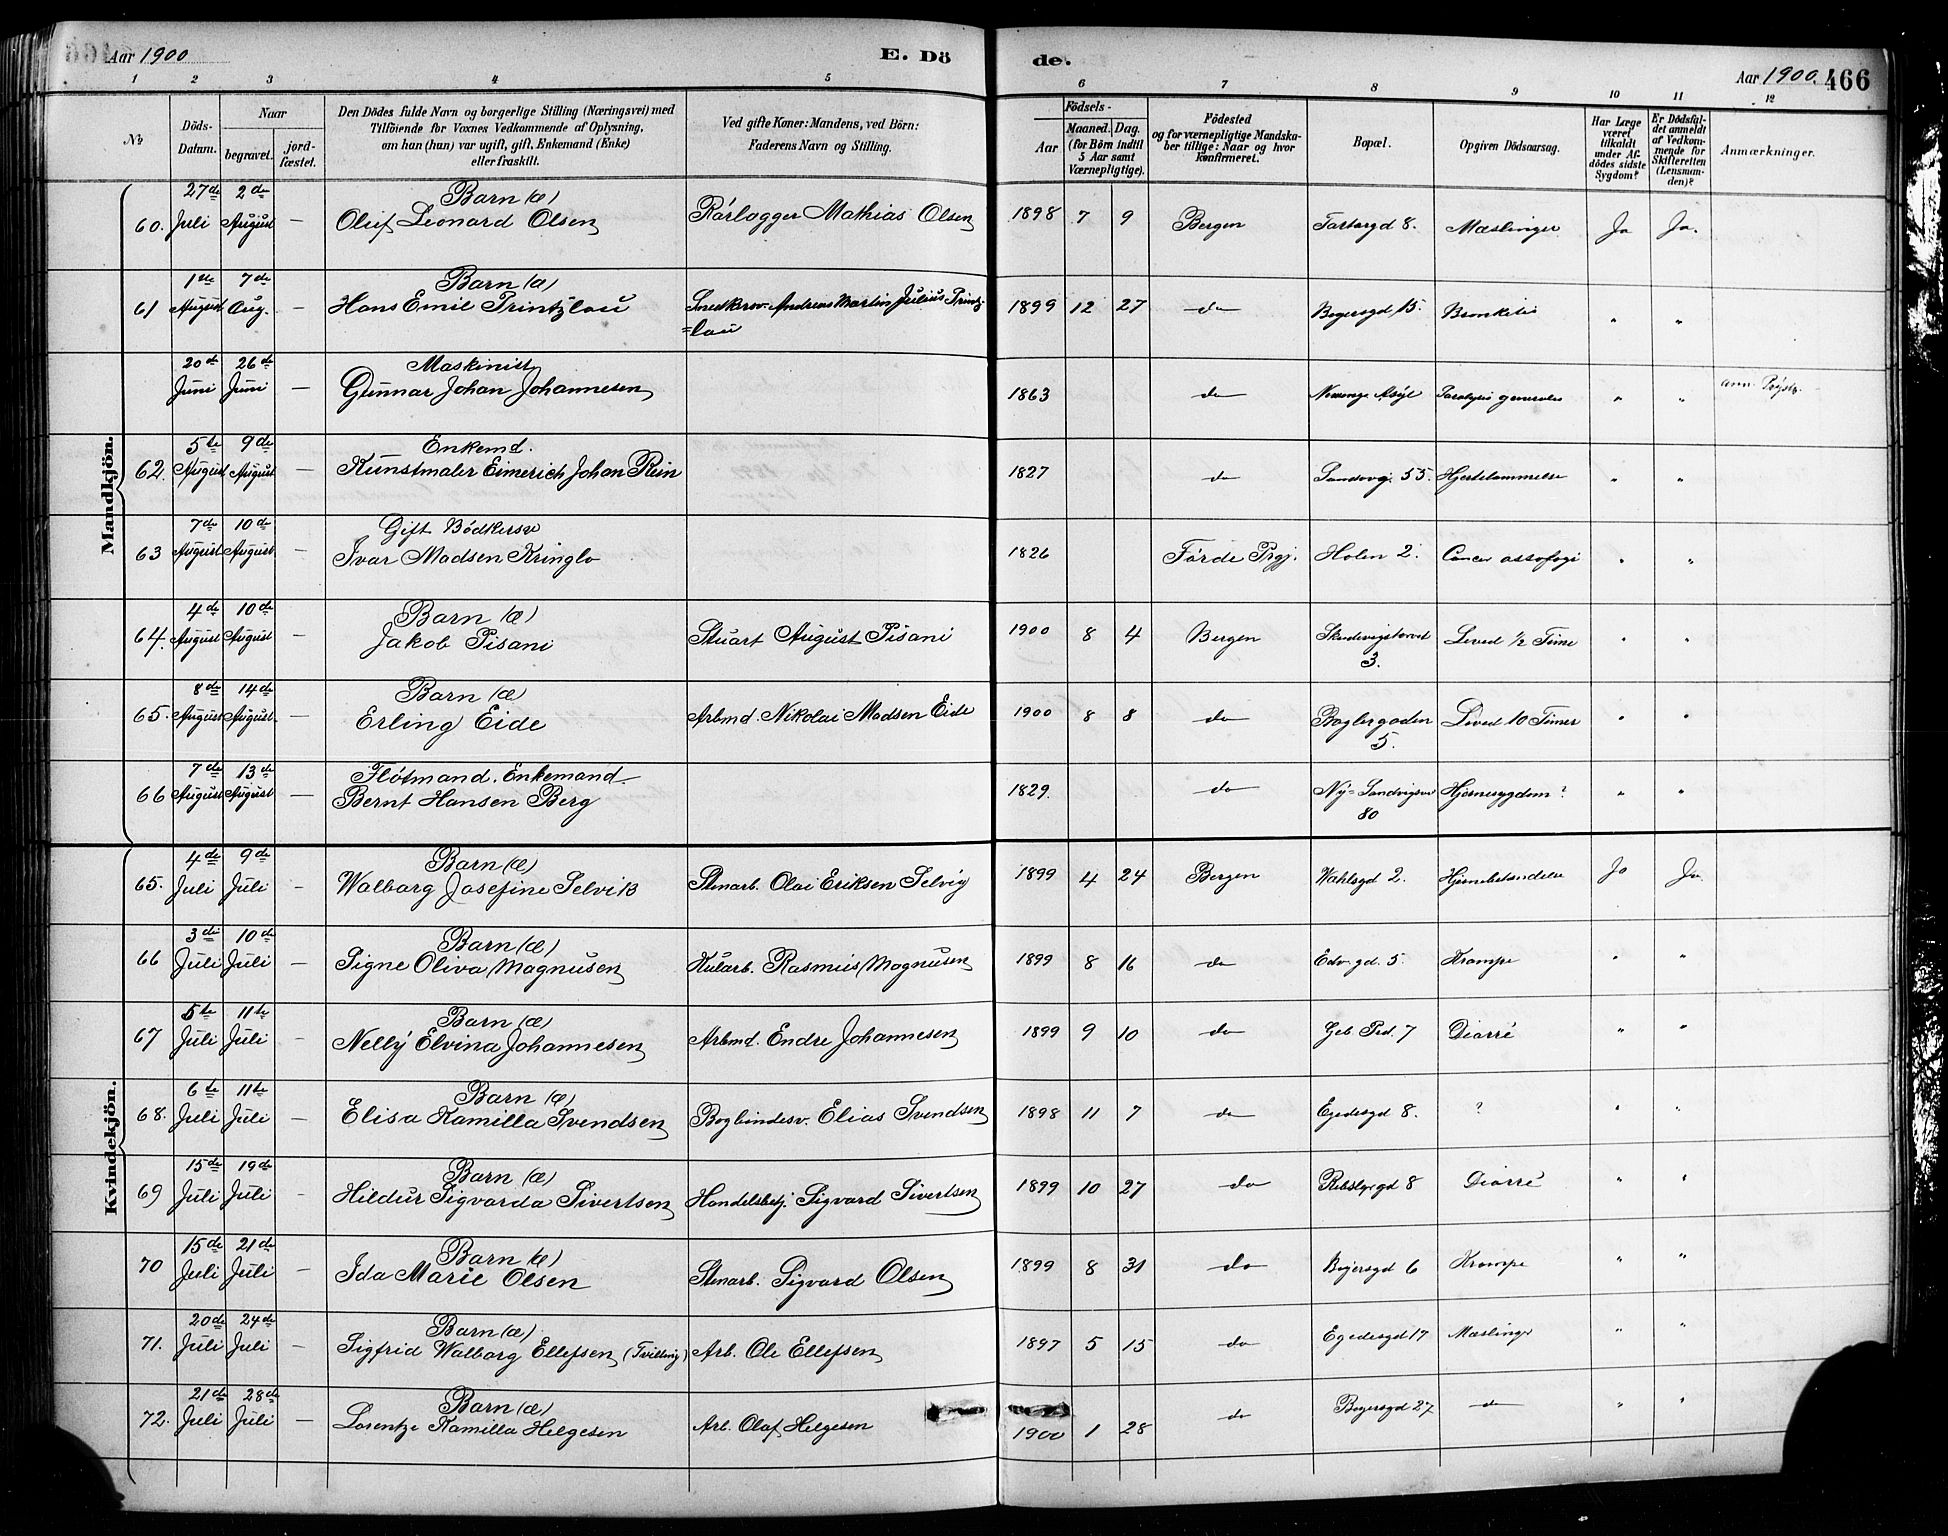 Aar 1900
E. Dö
de.
Aar 1900.
466
1 2 3 4 5 6 7 8 9 10 11 12
No
Döds-Datum.
Naar
begravet.
jord-fæstet.
Den Dödes fulde Navn og borgerlige Stilling (Næringsvei) med
Tilföiende for Voxnes Vedkommende af Oplysning,
om han (hun) var ugift, gift, Enkemand (Enke)
eller fraskilt.
Ved gifte Koner: Mandens, ved Börn:
Faderens Navn og Stilling.
Födsels-
Aar
Maaned. Dag.
(for Börn indtil
5 Aar samt
Værnepligtige).
Födested
og for værnepligtige Mandska-
ber tillige: Naar og hvor
konfirmeret.
Bopæl.
Opgiven Dödsaarsag.
Har Læge
været
tilkaldt
under Af-
dödes sidste
Sygdom?
Er Dödsfal-
det anmeldt
af Vedkom-
mende for
Skifteretten
(Lensman-
den)?
Anmærkninger.
Mandkjön.
27de 2de Barn (æ)
60. Juli August — Oluf Leonard Olsen Rørlægger Mathias Olsen 1898 7 9 Bergen 8. Mæslinger Ja Ja.
1ste 7de Barn (æ)
61 August Aug. — Hans Emil Printzlau Andreas Martin Julius Printz
=lau 1899 12 27 do 15. Bronkitis " "
20de 26de Maskinist
Juni Juni — Gunnar Johan Johannesen 1863 do Asyl Paralysis generalis " "
5te 9de Enkemd.
62. August August — Kunstmaler Eimerich Johan Rein 1827 do Sandsvg. 55. Hjertelammelse " "
7de 10de Gift Bødkersv
63 August August — Ivar Madsen Kringlo 1826 Førde Prgj. Holen 2. Cancer " "
4de 10de Barn (æ)
64. August August — Jakob Pisani Stuart August Pisani 1900 8 4 Bergen 3. Leved ½ Time " "
8de 14de Barn (æ)
65. August August — Erling Eide Arbmd. Nikolai Madsen Eide 1900 8 8 do Baglergaden
5. Leved 10 Timer " "
7de 13de Fløtmand. Enkemand
66 August August — Bernt Hansen Berg 1829. do Ny=Sandvigsv
80 Hjernesygdom? " "
Kvindekjön.
4de 9de Barn (æ)
65. Juli Juli — Walborg Josefine Selvik Stenarb. Olai Eriksen Selvig 1899 4 24 Bergen Wahlsgd 2. Hjernebetændelse Ja Ja
3de 10de Barn (æ)
66 Juli Juli — Signe Oliva Magnusen Kularb. Rasmus Magnusen 1899 8 16 do Edv. gd. 5. Krampe " "
5te 11te Barn (æ)
67 Juli Juli — Nelly Elvina Johannesen Arbmd. Endre Johannesen 1899 9 10 do 7 Diarré " "
6te 11te Barn (æ)
68. Juli Juli — Elisa Kamilla Svendsen Bogbindesv. Elias Svendsen 1898 11 7 do Egedesgd 8. ? " "
15de 19de Barn (æ)
69 Juli Juli — Hildur Sigvarda Sivertsen Handelsbetj. Sigvard Sivertsen 1899 10 27 do 8 Diarré " "
15de 21de Barn (æ)
70 Juli Juli — Ida Marie Olsen Stenarb. Sigvard Olsen 1899 8 31 do Bøjersgd 6 Krampe " "
20de 24de Barn (æ)
71. Juli Juli — Sigfrid Walborg Ellefsen (Tvilling) Arb. Ole Ellefsen 1897 5 15 do Egedesgd 17 Mæslinger " "
21de 28de Barn (æ)
72. Juli Juli — Lorentze Kamilla Helgesen Arb. Olaf Helgesen 1900 1 28 do Bøjersgd 27 do " "